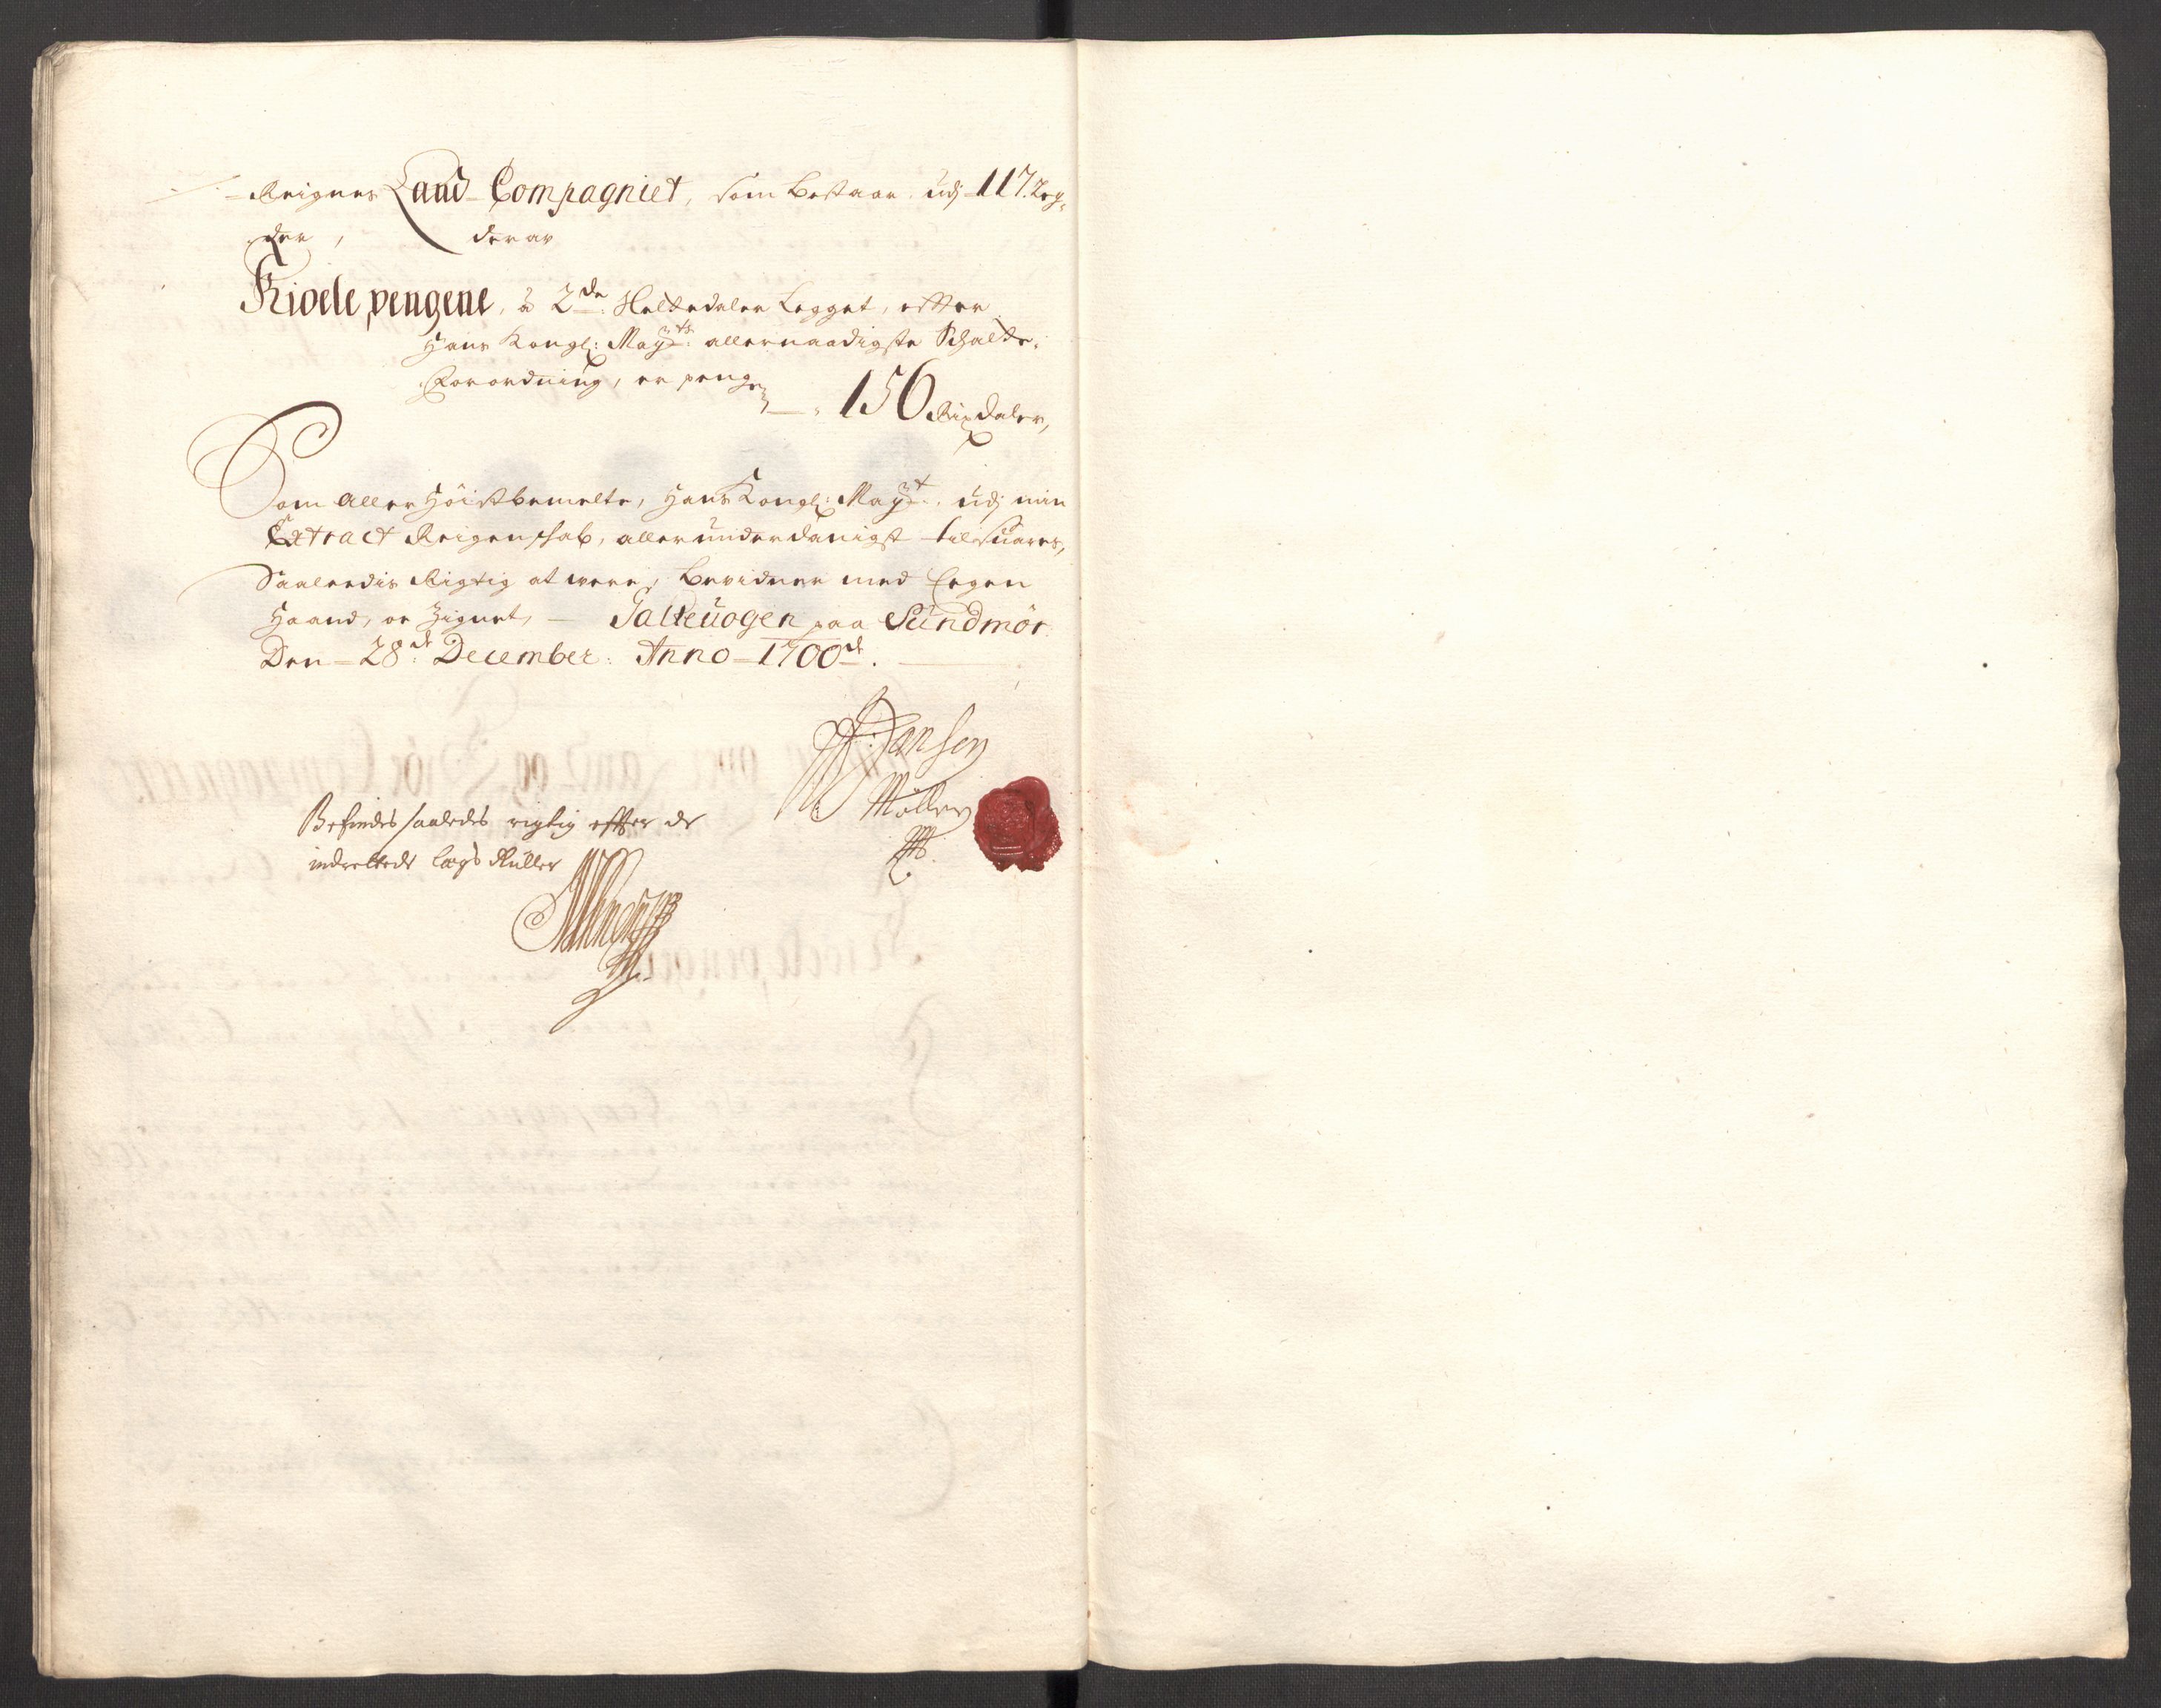 Reignes Land-Compagniet, som bestaar udj 117. Leg-
der, derav
Kiolepengene, à 2de Slettedaler Legget, efter
Hans Kongl: Mayts: allernaadigste
Forordning, er penge 156 Rixdaler,
Som aller Höistbemelte, Hans Kongl: Mayt. udj min
Extract Reigenschab, allerunderdanigst tilsuares,
Saaledis Rigtig at were, bevidner med Eegen
Haand, oc Zignet, – paa Sundmör
Den 28de: December: Anno 1700de.
Jansen
Möller
Befindes saaledes rigtig effter de
indrettede Lægs Ruller